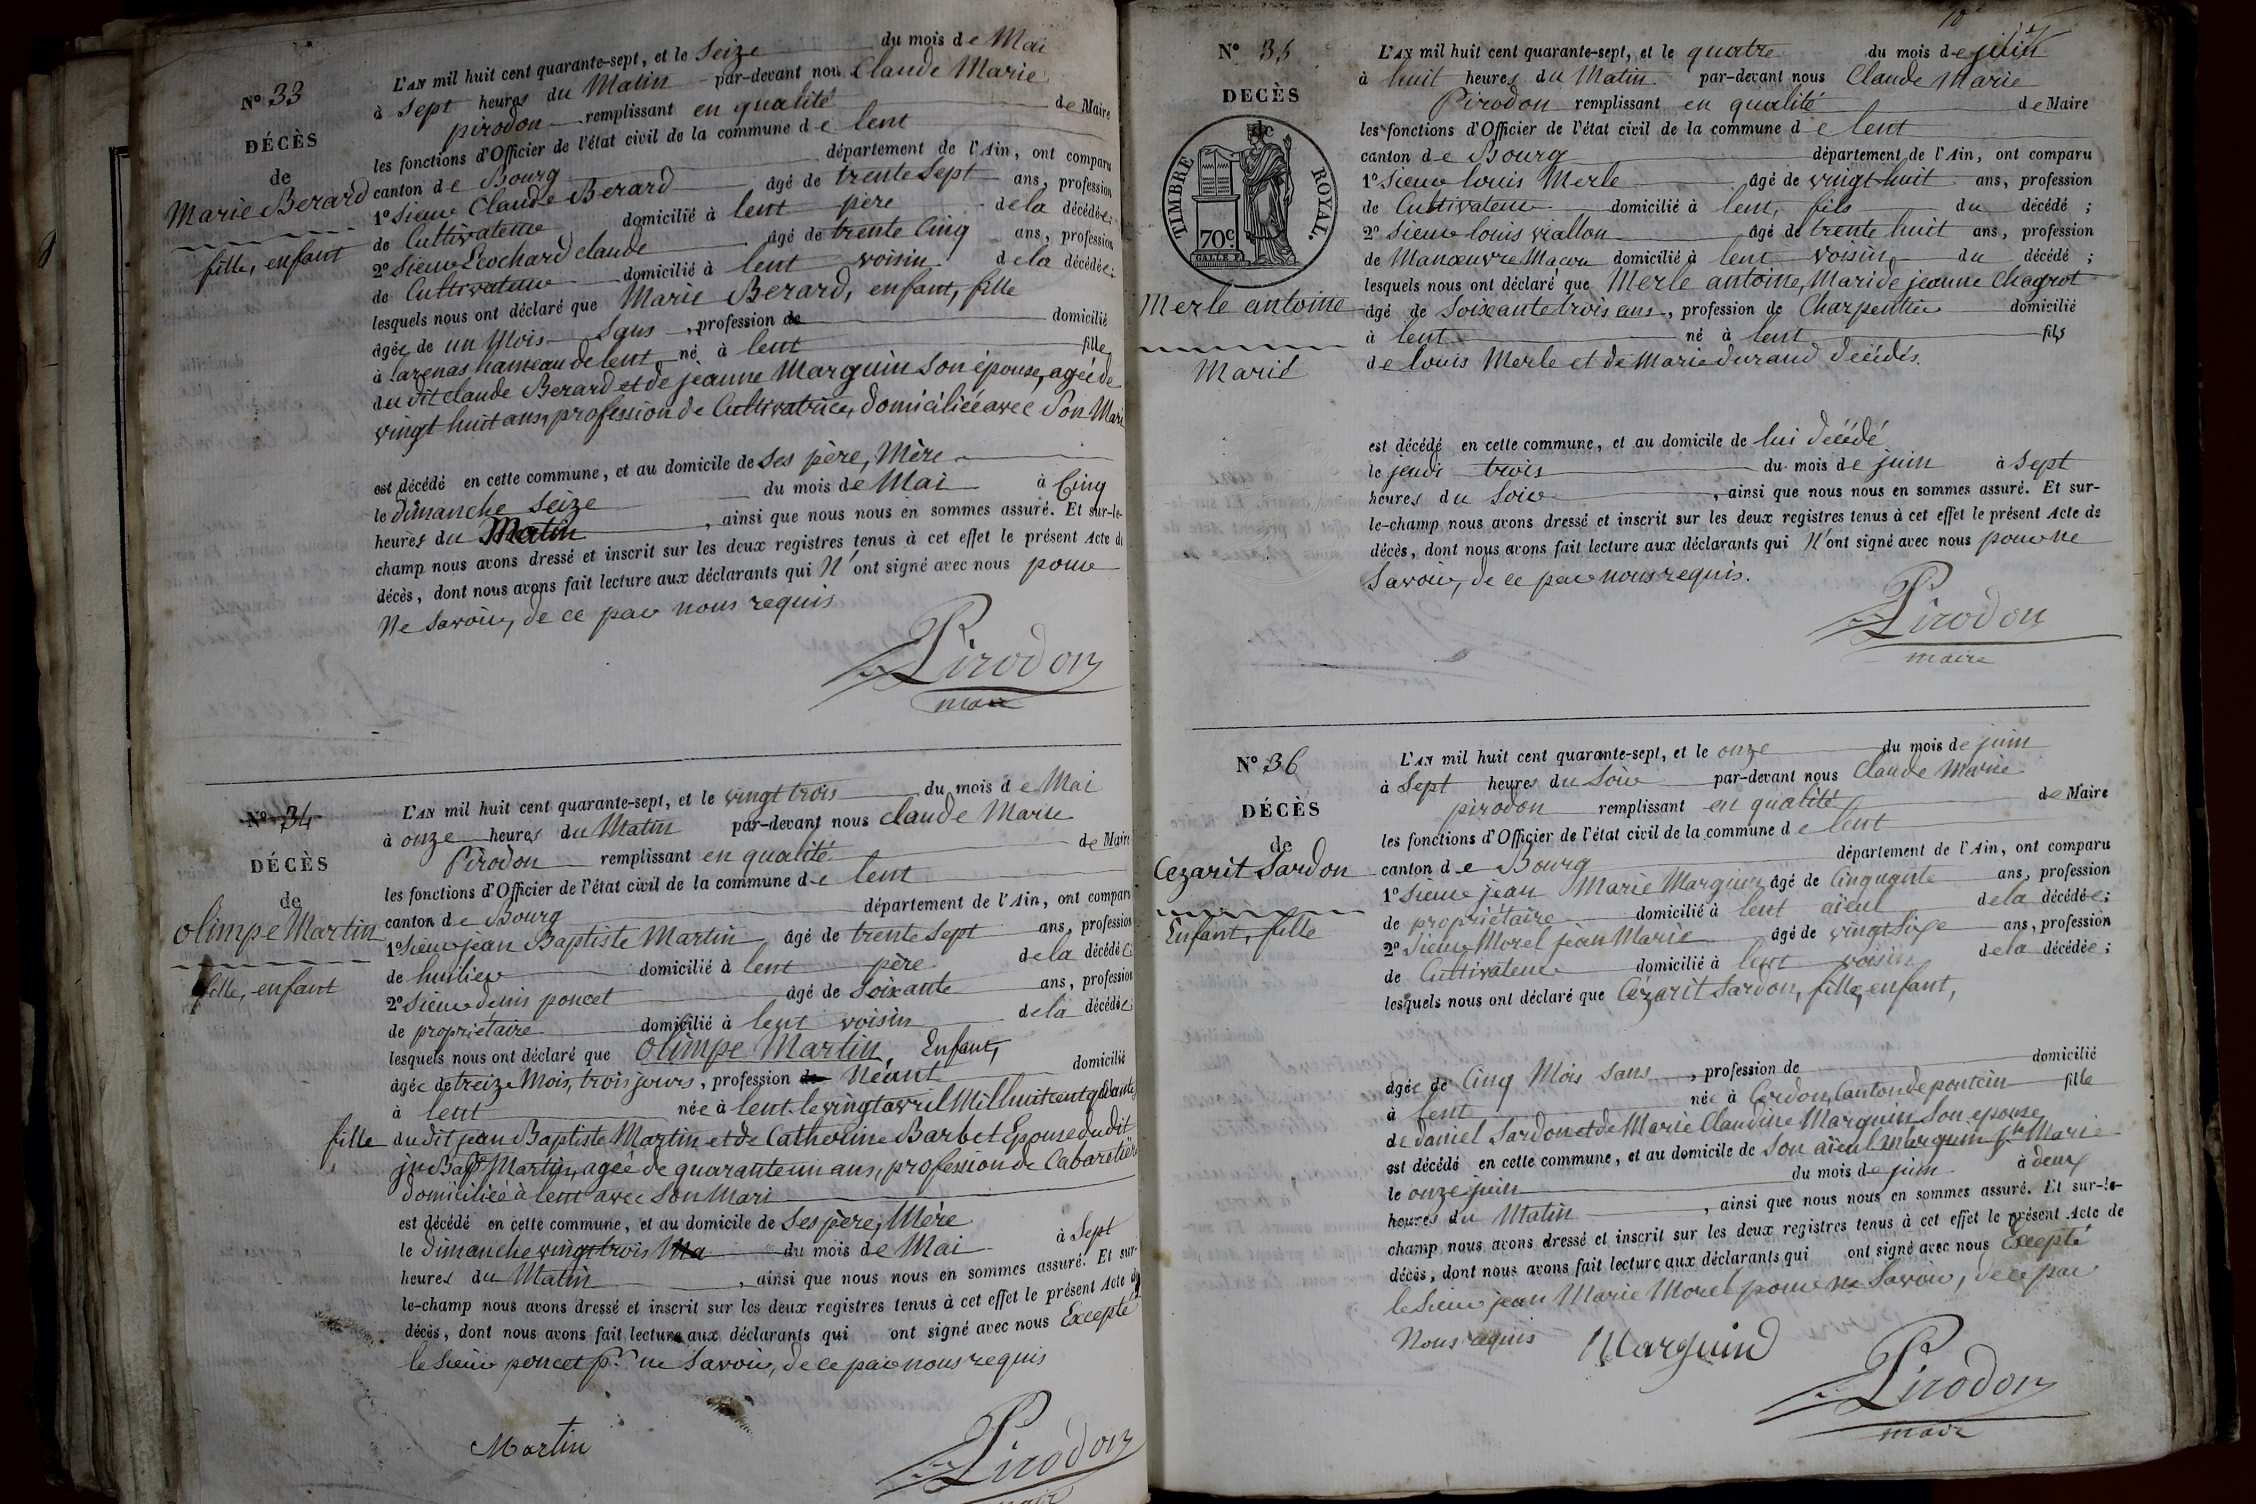 N° 33
DÉCÈS
de
Marie Berard
fille, enfant
L'AN mil huit cent quarante-sept, et le Seize du mois de Mai
à Sept heures du Matin par-devant nous Claude Marie
pirodon remplissant en qualité de Maire
les fonctions d'Officier de l'état civil de la commune de lent
canton de Bourg département de l'Ain, ont comparu
1° Sieur Claude Berard âgé de trente Sept ans, profession
de Cultivateur domicilié à lent père de la décédée;
2° Sieur Leochard claude âgé de trente Cinq ans, profession
de Cultivateur domicilié à lent voisin de la décédée;
lesquels nous ont déclaré que Marie Berard, enfant, fille
âgée de un Mois Sans, profession de domicilié
à Larenas hameau de lent, né à lent fille
du dit claude Berard et de jeanne Marguin Son épouse, agée de
vingt huit ans, profession de Cultivatrice, domiciliée avec Son Mari
est décédé en cette commune, et au domicile de Ses père, Mère
le dimanche Seize du mois de Mai à Cinq
heures du Matin, ainsi que nous nous en sommes assuré. Et sur-le-
champ nous avons dressé et inscrit sur les deux registres tenus à cet effet le présent Acte de
décès, dont nous avons fait lecture aux déclarants qui N'ont signé avec nous pour
Ne Savoir, de ce par nous requis
Pirodon
maire
N° 34
DÉCÈS
de
olimpe Martin
fille, enfant
L'AN mil huit cent quarante-sept, et le vingt trois du mois de Mai
à onze heures du Matin par-devant nous claude Marie
Pirodon remplissant en qualité de Maire
les fonctions d'Officier de l'état civil de la commune de lent
canton de Bourg département de l'Ain, ont comparu
1° Sieur jean Baptiste Martin âgé de trente Sept ans, profession
de huilier domicilié à lent père de la décédée
2° Sieur denis poncet âgé de Soixante ans, profession
de propriétaire domicilié à lent voisin de la décédée
lesquels nous ont déclaré que olimpe Martin, Enfant,
âgée de treize Mois, trois jours, profession de Néant domicilié
à lent née à lent le vingt avril Mil huit cent quarante
fille du dit jean Baptiste Martin et de Catherine Barbet Epouse du dit
jn Bapte Martin, agée de quarante un ans, profession de Cabaretière
domiciliée à lent avec Son Mari
est décédé en cette commune, et au domicile de Ses père, Mère
le dimanche vingt trois Ma du mois de Mai à Sept
heures du Matin, ainsi que nous nous en sommes assuré. Et sur-
le-champ nous avons dressé et inscrit sur les deux registres tenus à cet effet le présent Acte de
décès, dont nous avons fait lecture aux déclarants qui ont signé avec nous Excepté
le Sieur poncet pr ne Savoir, de ce par nous requis
Martin
Pirodon
maire
N° 35
DECÈS
de
TIMBRE ROYAL.
70c.
Merle antoine
Marié
L'AN mil huit cent quarante-sept, et le quatre du mois de juin
à huit heures du Matin par-devant nous Claude Marie
Pirodon remplissant en qualité de Maire
les fonctions d'Officier de l'état civil de la commune de lent
canton de Bourg département de l'Ain, ont comparu
1° Sieur louis Merle âgé de vingt huit ans, profession
de Cultivateur domicilié à lent, fils du décédé;
2° Sieur louis viallon âgé de trente huit ans, profession
de Manœuvre Macon domicilié à lent voisin du décédé;
lesquels nous ont déclaré que Merle antoine, Mari de jeanne Chagrot
âgé de Soixante trois ans, profession de Charpentier domicilié
à lent né à lent fils
de louis Merle et de Marie durand décédés.
est décédé en cette commune, et au domicile de lui décédé
le jeudi trois du mois de juin à Sept
heures du Soir, ainsi que nous nous en sommes assuré. Et sur-
le-champ nous avons dressé et inscrit sur les deux registres tenus à cet effet le présent Acte de
décès, dont nous avons fait lecture aux déclarants qui N'ont signé avec nous pour ne
Savoir, de ce par nous requis.
Pirodon
maire
N° 36
DÉCÈS
de
Cezarit Sardon
Enfant, fille
L'AN mil huit cent quarante-sept, et le onze du mois de juin
à Sept heures du Soir par-devant nous Claude Marie
pirodon remplissant en qualité de Maire
les fonctions d'Officier de l'état civil de la commune de lent
canton de Bourg département de l'Ain, ont comparu
1° Sieur jean Marie Marguin âgé de Cinquante ans, profession
de propriétaire domicilié à lent aïeul de la décédée;
2° Sieur Morel jean Marie âgé de vingt Six ans, profession
de Cultivateur domicilié à lent voisin de la décédée;
lesquels nous ont déclaré que Cézarit Sardon, fille, enfant,
âgée de Cinq Mois Sans, profession de domicilié
à lent née à Cerdon, Canton de poncin fille
de daniel Sardon et de Marie Claudine Marguin Son epouse
est décédé en cette commune, et au domicile de Son aïeul Marguin jn Marie
le onze juin du mois de juin à deux
heures du Matin, ainsi que nous nous en sommes assuré. Et sur-le-
champ nous avons dressé et inscrit sur les deux registres tenus à cet effet le présent Acte de
décès, dont nous avons fait lecture aux déclarants qui ont signé avec nous Excepté
le Sieur jean Marie Morel pour ne Savoir, de ce par
Nous requis
Marguind
Pirodon
maire